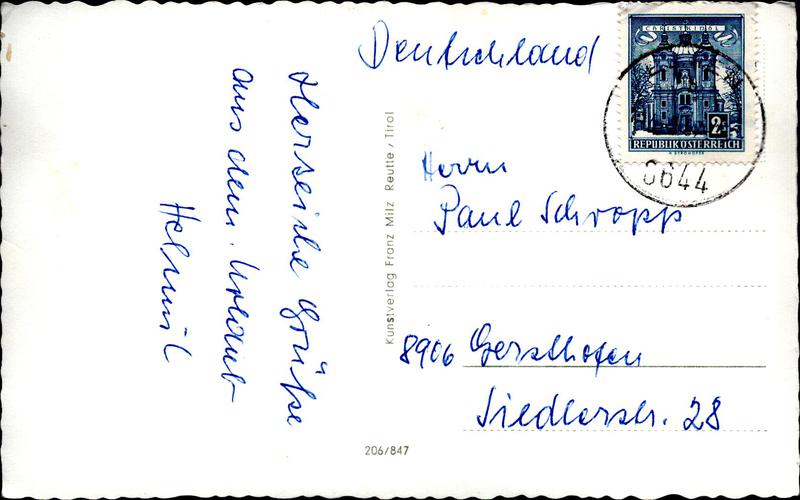 Herzliche Grüße
aus dem Urlaub
Helmut
Kunstverlag Franz Milz Reutte / Tirol
206/847
Deutschland
CHRISTKINDL
2
REPUBLIK ÖSTERREICH
6644
Herrn
Paul Schropp
8906 Gersthofen
Siedlerstr. 28